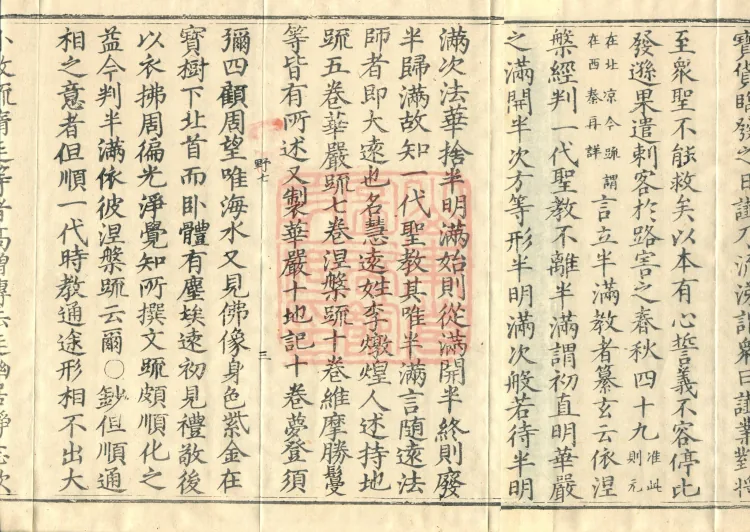 至衆聖不能救矣以本有心誓義不容停比
發遜果遣刺客於路害之春秋四十九准此則元
在北凉今疏謂在西秦再詳言立半滿教者纂玄云依涅
槃經判一代聖教不離半滿謂初直明華嚴
之滿開半次方等形半明滿次般若待半明
滿次法華捨半明滿始則從滿開半終則廢
半歸滿故知一代聖教其唯半滿言隨遠法
師者即大遠也名慧遠姓李燉煌人述持地
疏五卷華嚴疏七卷涅槃疏十卷維摩勝鬘
等皆有所述又製華嚴十地記十卷夢登須
野七 三
彌四顧周望唯海水又見佛像身色紫金在
寶樹下北首而卧體有塵埃遠初見禮敬後
以衣拂周徧光淨覺知所撰文疏頗順化之
益今判半滿依彼涅槃疏云爾○鈔但順通
相之意者但順一代時教通途形相不出大